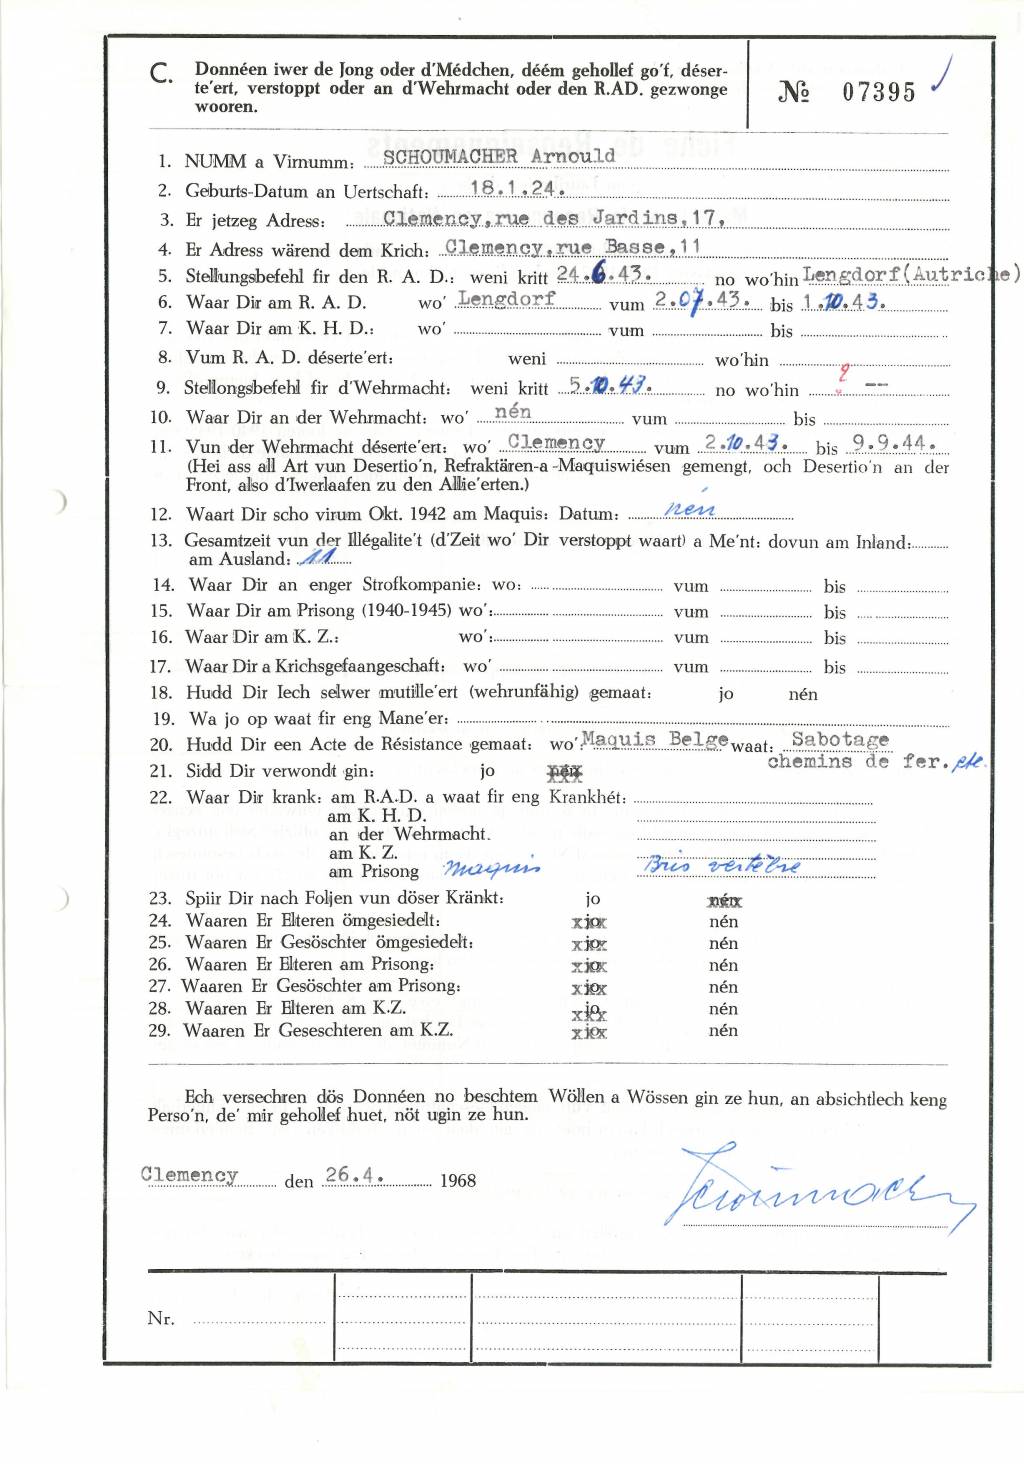 C. Donnéen iwer de Jong oder d'Médchen, déém gehollef go'f, déser-
te'ert, verstoppt oder an d'Wehrmacht oder den R.AD. gezwonge
wooren.
№ 07395
1. NUMM a Virnumm: SCHOUMACHER Arnould
2. Geburts-Datum an Uertschaft: 18.1.24.
3. Er jetzeg Adress: Clemency,rue des Jardins,17,
4. Er Adress wärend dem Krich: Clemency,rue Basse,11
5. Stellungsbefehl fir den R. A. D.: weni kritt 24.6.43. no wo'hin Lengdorf(Autriche)
6. Waar Dir am R. A. D. wo' Lengdorf vum 2.07.43. bis 1.10.43.
7. Waar Dir am K. H. D.: wo' vum bis
8. Vum R. A. D. déserte'ert: weni wo'hin
9. Stellongsbefehl fir d'Wehrmacht: weni kritt 5.10.43. no wo'hin ? --
10. Waar Dir an der Wehrmacht: wo' nén vum bis
11. Vun der Wehrmacht déserte'ert: wo' Clemency vum 2.10.43. bis 9.9.44.
(Hei ass all Art vun Desertio'n, Refraktären-a-Maquiswiésen gemengt, och Desertio'n an der
Front, also d'Iwerlaafen zu den Allie'erten.)
12. Waart Dir scho virum Okt. 1942 am Maquis: Datum: nén
13. Gesamtzeit vun der Illégalite't (d'Zeit wo' Dir verstoppt waart) a Me'nt: dovun am Inland:
am Ausland: 11
14. Waar Dir an enger Strofkompanie: wo: vum bis
15. Waar Dir am Prisong (1940-1945) wo': vum bis
16. Waar Dir am K. Z.: wo': vum bis
17. Waar Dir a Krichsgefaangeschaft: wo' vum bis
18. Hudd Dir Iech selwer mutille'ert (wehrunfähig) gemaat: jo nén
19. Wa jo op waat fir eng Mane'er:
20. Hudd Dir een Acte de Résistance gemaat: wo': Maquis Belge waat: Sabotage
chemins de fer. etc.
21. Sidd Dir verwondt gin: jo nén
22. Waar Dir krank: am R.A.D. a waat fir eng Krankhét:
am K. H. D.
an der Wehrmacht.
am K. Z.
am Prisong Maquis Bris vertèbre
23. Spiir Dir nach Foljen vun döser Kränkt: jo nén
24. Waaren Er Elteren ömgesiedelt: xjox nén
25. Waaren Er Gesöschter ömgesiedelt: xjox nén
26. Waaren Er Elteren am Prisong: xjox nén
27. Waaren Er Gesöschter am Prisong: xjox nén
28. Waaren Er Elteren am K.Z. xjox nén
29. Waaren Er Geseschteren am K.Z. xjox nén
Ech versechren dös Donnéen no beschtem Wöllen a Wössen gin ze hun, an absichtlech keng
Perso'n, de' mir gehollef huet, nöt ugin ze hun.
Clemency den 26.4. 1968
Schoumacher
Nr.